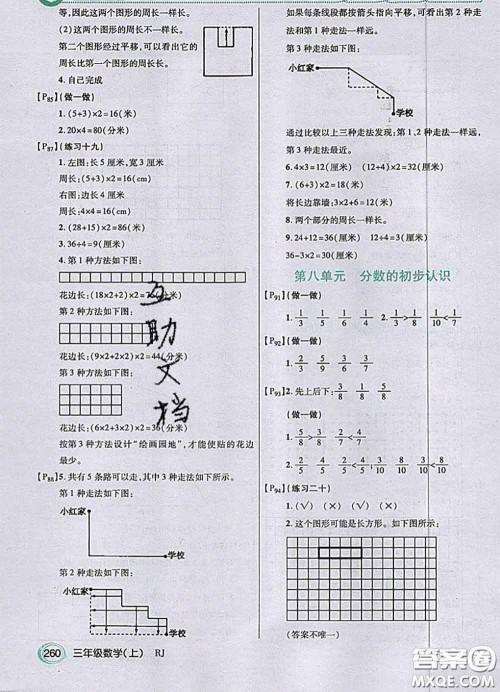 等,因此这两个图形的周长一样长。
(2)这两个图形的周长不一样长。
第二个图形经过平移,可以看出它的
周长比第一个图形的周长长。
4. 自己完成
【P85】(做一做)
1. (5+3)×2=16(厘米)
2. 20×4=80(分米)
【P87】(练习十九)
1. 左图:长5厘米,宽3厘米
周长:(5+3)×2=16(cm)
右图:边长4厘米
周长:4×4=16(cm)
2. (28+15)×2=86(米)
3. 36÷4=9(厘米)
4. 第1种方法如下图:
花边长:(18×2+2)×2=76(分米)
第2种方法如下图:
花边长:(9×2+2×2)×2=44(分米)
第3种方法如下图:
花边长:(6×2+3×2)×2=36(分米)
按第3种方法设计“绘画园地”,才能使贴的花边
最少。
【P88】5. 共有5条路可以走,其中3种走法如下所示。
第1种走法如下图:
小红家
学校
第2种走法如下图:
小红家
学校
260 三年级数学(上) RJ
互助文档
如果每条线段都按箭头指向平移,可发现第2种走
法和第1种走法一样远。
第3种走法如下图:
小红家
学校
通过比较以上三种走法发现:第1、2种走法一样远,
第3种走法最近。
6. 4×3=12(米) (12+4)×2=32(米)
7. 6×2+9=21(米)
将长边靠墙:6×2+9=21(米)
8. 两个部分的周长一样长。
9. 24+12=36(厘米) 36÷3=12(厘米)
36-3×2=30(厘米)
第八单元 分数的初步认识
【P91】(做一做)
1. 1/3 1/5 1/9 1/10 2. 1/3>1/8 1/10<1/7
【P92】(做一做)
1. 1/2 2/3 3/5 4/9
【P93】2. 先上后下:3/8 1/8 5/8
(做一做)
1. 5/8 3/7 2/9 3/10 4/10 8/10
2. 3/5>1/5 3/8<5/8 4/10<9/10 6/6=1
【P94】(练习二十)
1. (√) (×) (×) (√)
2. 这个图形可能是长方形。如下图所示:
(答案不唯一)
答案圈
MXQE.COM